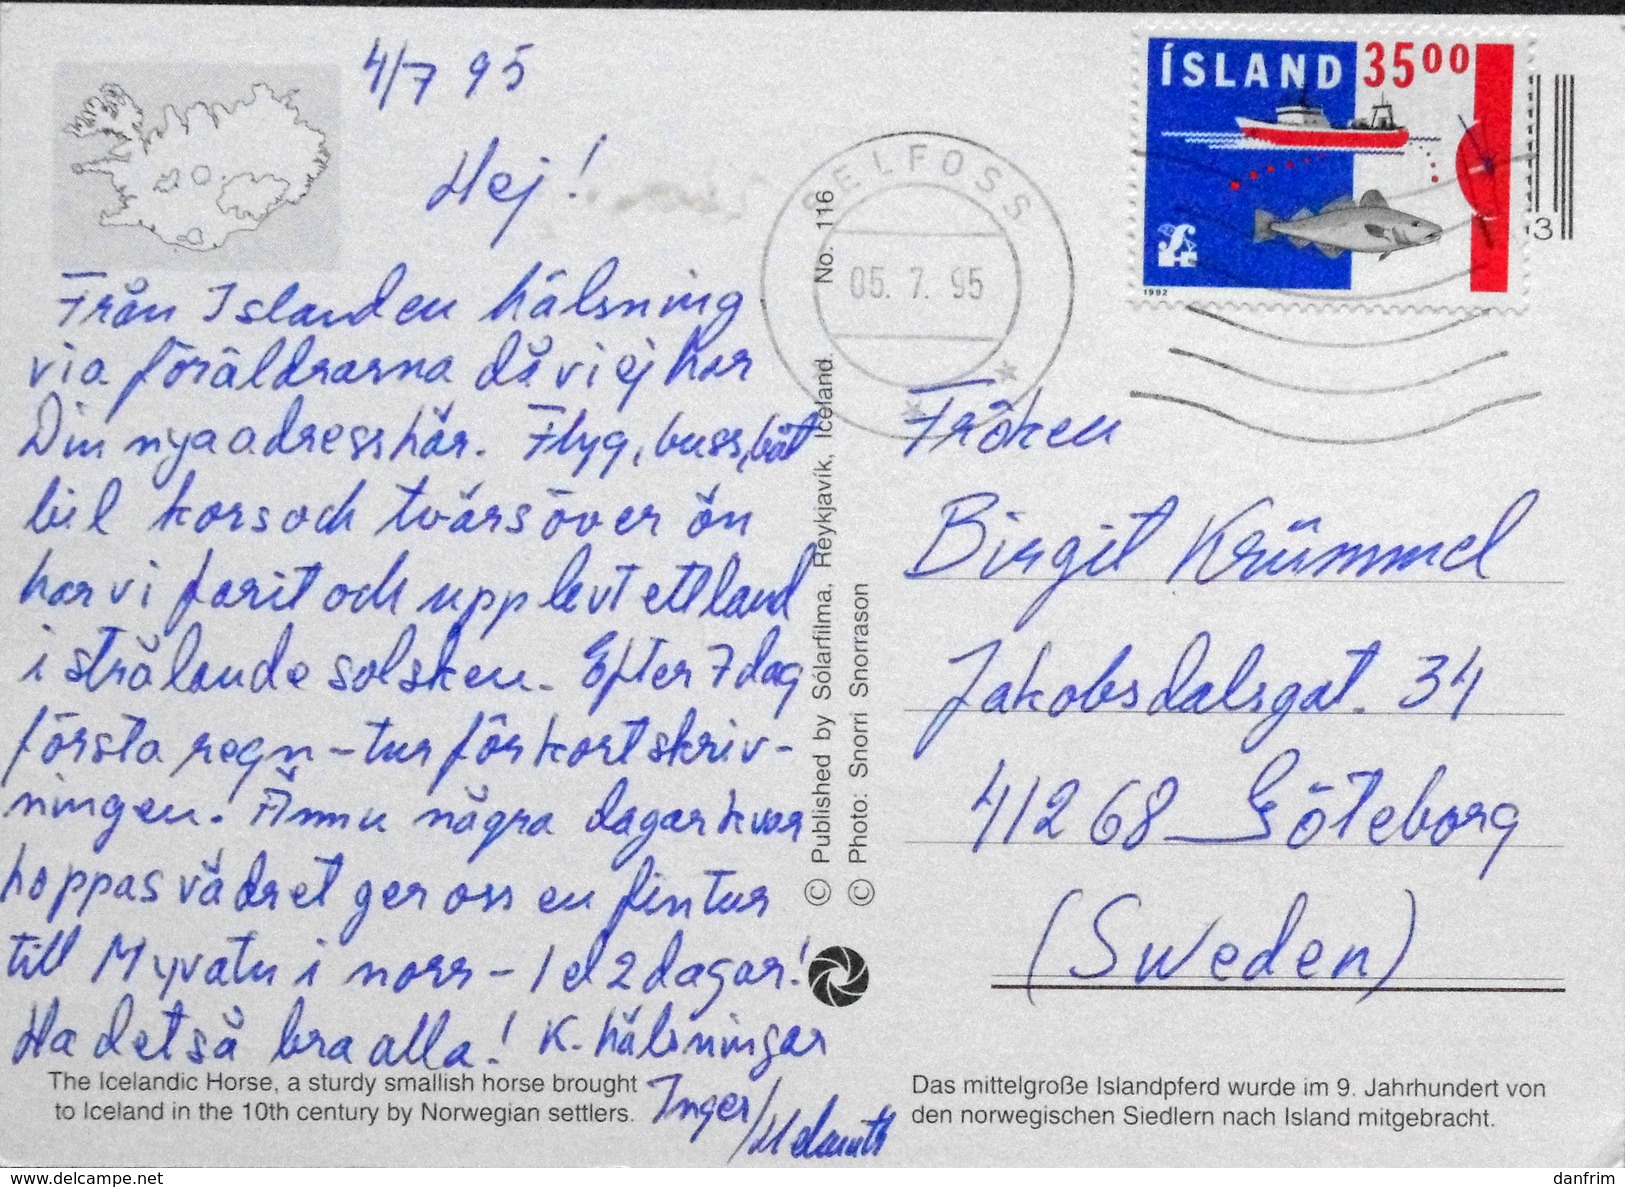 4/7 95
Hej!
Från Islanden hälsning
via föräldrarna då vi ej har
Din nya adress här. Flyg, buss, båt
bil kors och tvärs över ön
har vi farit och upplevt ett land
i strålande solsken. Efter 7 dag
första regn-tur för kortskriv-
ningen! Ännu några dagar kvar
hoppas vädret ger oss en fin tur
till Myvatn i norr - 1 el 2 dagar!
Ha det så bra alla! K. hälsningar
Inger/Helmuth
The Icelandic Horse, a sturdy smallish horse brought
to Iceland in the 10th century by Norwegian settlers.
© Published by Sólarfilma. Reykjavík, Iceland. No. 116
© Photo: Snorri Snorrason
SELFOSS
05. 7. 95
ÍSLAND 3500
1992
3
Fröken
Birgit Krümmel
Jakobsdalsgat. 34
412 68 Göteborg
(Sweden)
Das mittelgroße Islandpferd wurde im 9. Jahrhundert von
den norwegischen Siedlern nach Island mitgebracht.
www.delcampe.net
danfrim